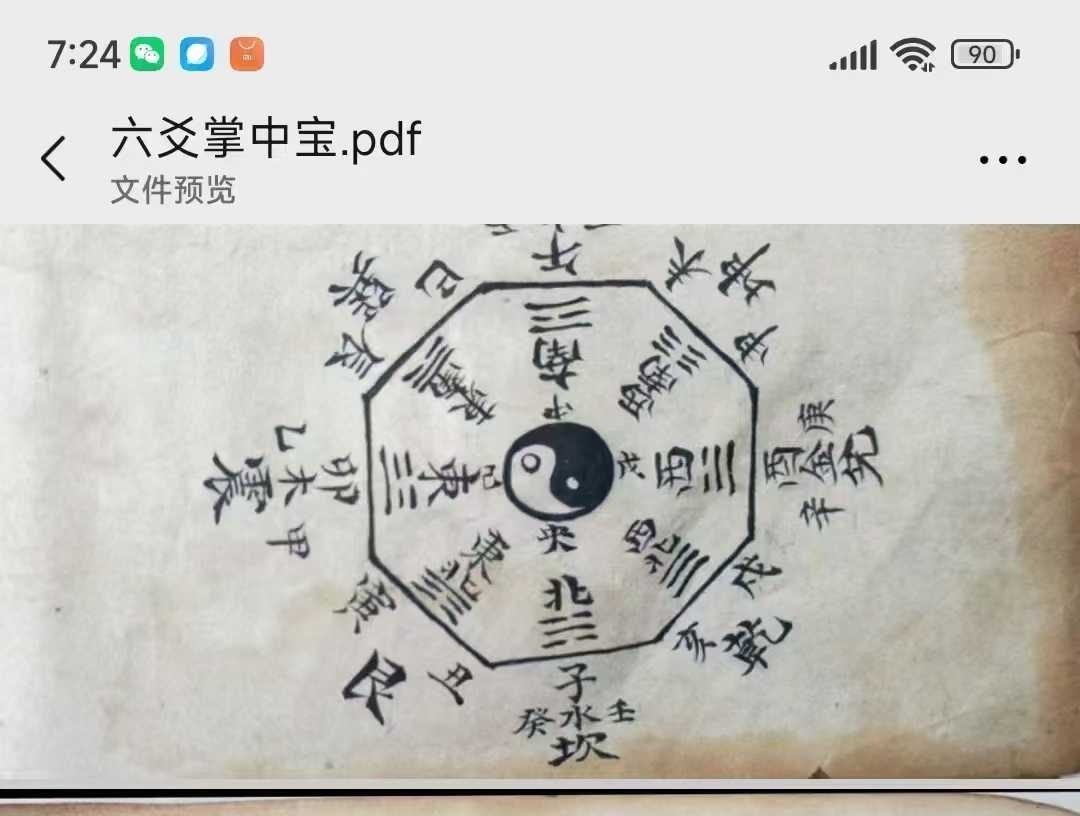 7:24
90
六爻掌中宝.pdf
文件预览
午
巳
未
巽
坤
辰
申
南
東南
西南
中
乙
庚
震木卯
東
己
戊
西
酉金兌
甲
辛
東北
央
西北
北
寅
戌
艮
丑
亥
乾
子
癸水壬
坎